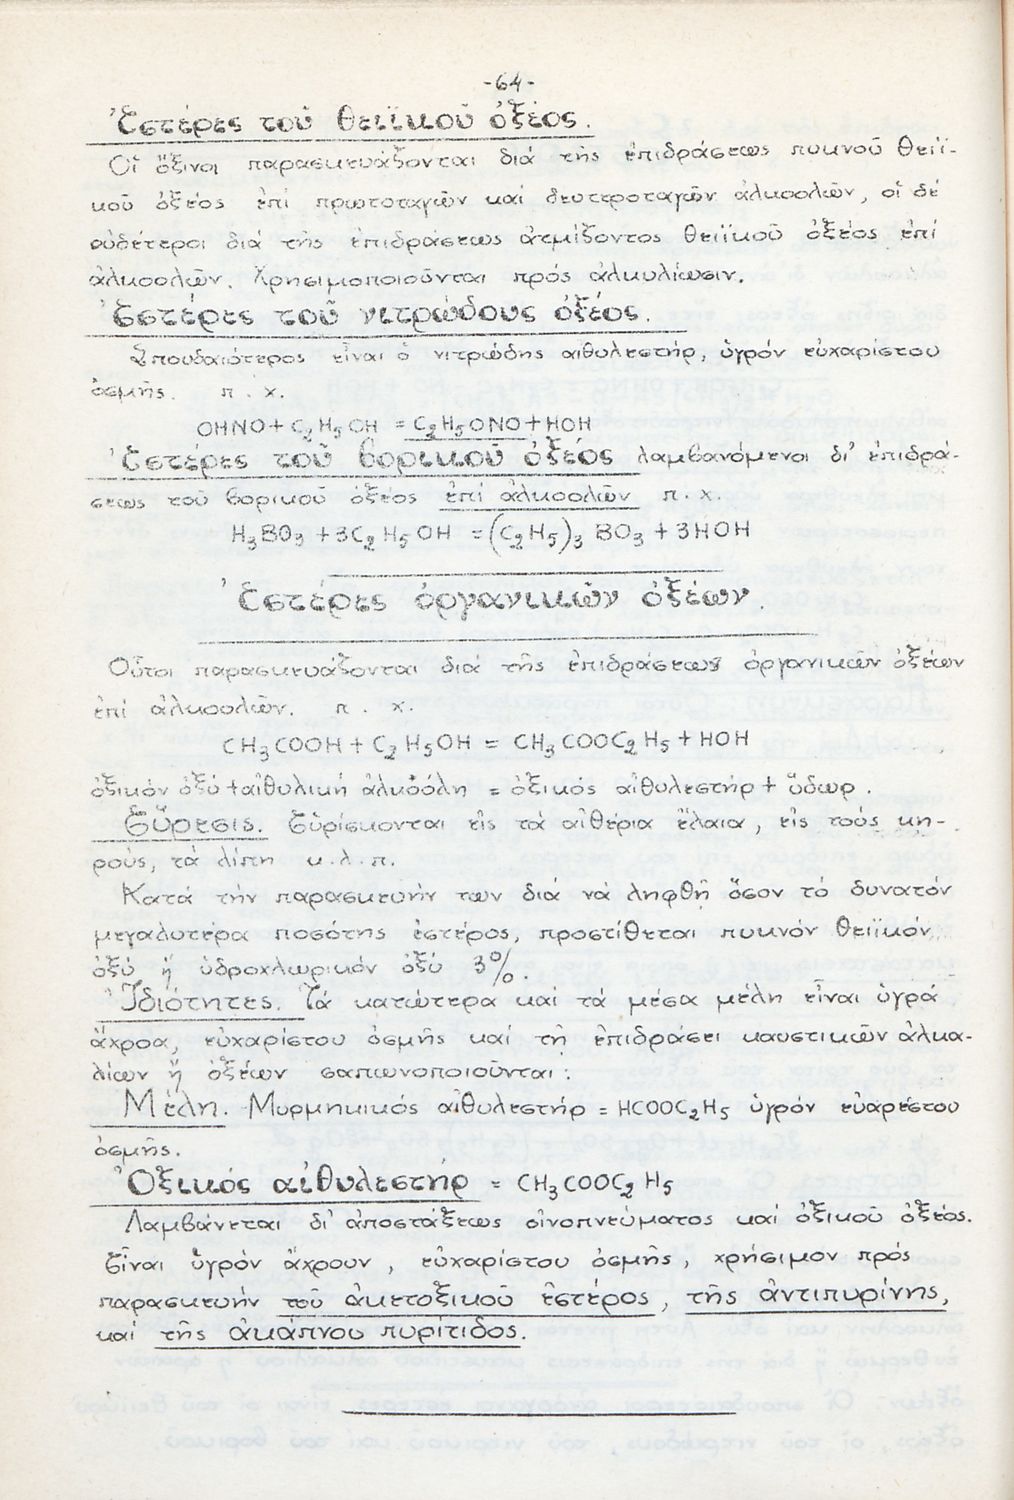 -64-
Ἐστέρες τοῦ θειϊκοῦ ὀξέος.
Οἱ ὄξινοι παρασκευάζονται διά τῆς ἐπιδράσεως πυκνοῦ θειϊ-
κοῦ ὀξέος ἐπί πρωτοταγῶν καί δευτεροταγῶν ἀλκοολῶν, οἱ δέ
οὐδέτεροι διά τῆς ἐπιδράσεως ἀτμίζοντος θειϊκοῦ ὀξέος ἐπί
ἀλκοολῶν. Χρησιμοποιοῦνται πρός ἀλκυλίωσιν.
Ἐστέρες τοῦ νιτρώδους ὀξέος.
Σπουδαιότερος εἶναι ὁ νιτρώδης αἰθυλεστήρ, ὑγρόν εὐχαρίστου
ὀσμῆς. π. χ.
OHNO + C₂H₅OH = C₂H₅ONO + HOH
Ἐστέρες τοῦ βορικοῦ ὀξέος λαμβανόμενοι δι' ἐπιδρά-
σεως τοῦ βορικοῦ ὀξέος ἐπί ἀλκοολῶν π. χ.
H₃BO₃ + 3C₂H₅OH = (C₂H₅)₃BO₃ + 3HOH
Ἐστέρες ὀργανικῶν ὀξέων.
Οὗτοι παρασκευάζονται διά τῆς ἐπιδράσεως ὀργανικῶν ὀξέων
ἐπί ἀλκοολῶν. π. χ.
CH₃COOH + C₂H₅OH = CH₃COOC₂H₅ + HOH
ὀξικόν ὀξύ + αἰθυλική ἀλκοόλη = ὀξικός αἰθυλεστήρ + ὕδωρ.
Εὕρεσις. Εὑρίσκονται εἰς τά αἰθέρια ἔλαια, εἰς τούς κη-
ρούς, τά λίπη κ.λ.π.
Κατά τήν παρασκευήν των διά νά ληφθῆ ὅσον τό δυνατόν
μεγαλυτέρα ποσότης ἐστέρος, προστίθεται πυκνόν θειϊκόν
ὀξύ ἤ ὑδροχλωρικόν ὀξύ 3%.
Ἰδιότητες. Τά κατώτερα καί τά μέσα μέλη εἶναι ὑγρά
ἄχροα, εὐχαρίστου ὀσμῆς καί τῆ ἐπιδράσει καυστικῶν ἀλκα-
λίων ἤ ὀξέων σαπωνοποιοῦνται:
Μέλη. Μυρμηκικός αἰθυλεστήρ = HCOOC₂H₅ ὑγρόν εὐαρέστου
ὀσμῆς.
Ὀξικός αἰθυλεστήρ = CH₃COOC₂H₅
Λαμβάνεται δι' ἀποστάξεως οἰνοπνεύματος καί ὀξικοῦ ὀξέος.
Εἶναι ὑγρόν ἄχρουν, εὐχαρίστου ὀσμῆς, χρήσιμον πρός
παρασκευήν τοῦ ἀκετοξικοῦ ἐστέρος, τῆς ἀντιπυρίνης,
καί τῆς ἀκάπνου πυρίτιδος.